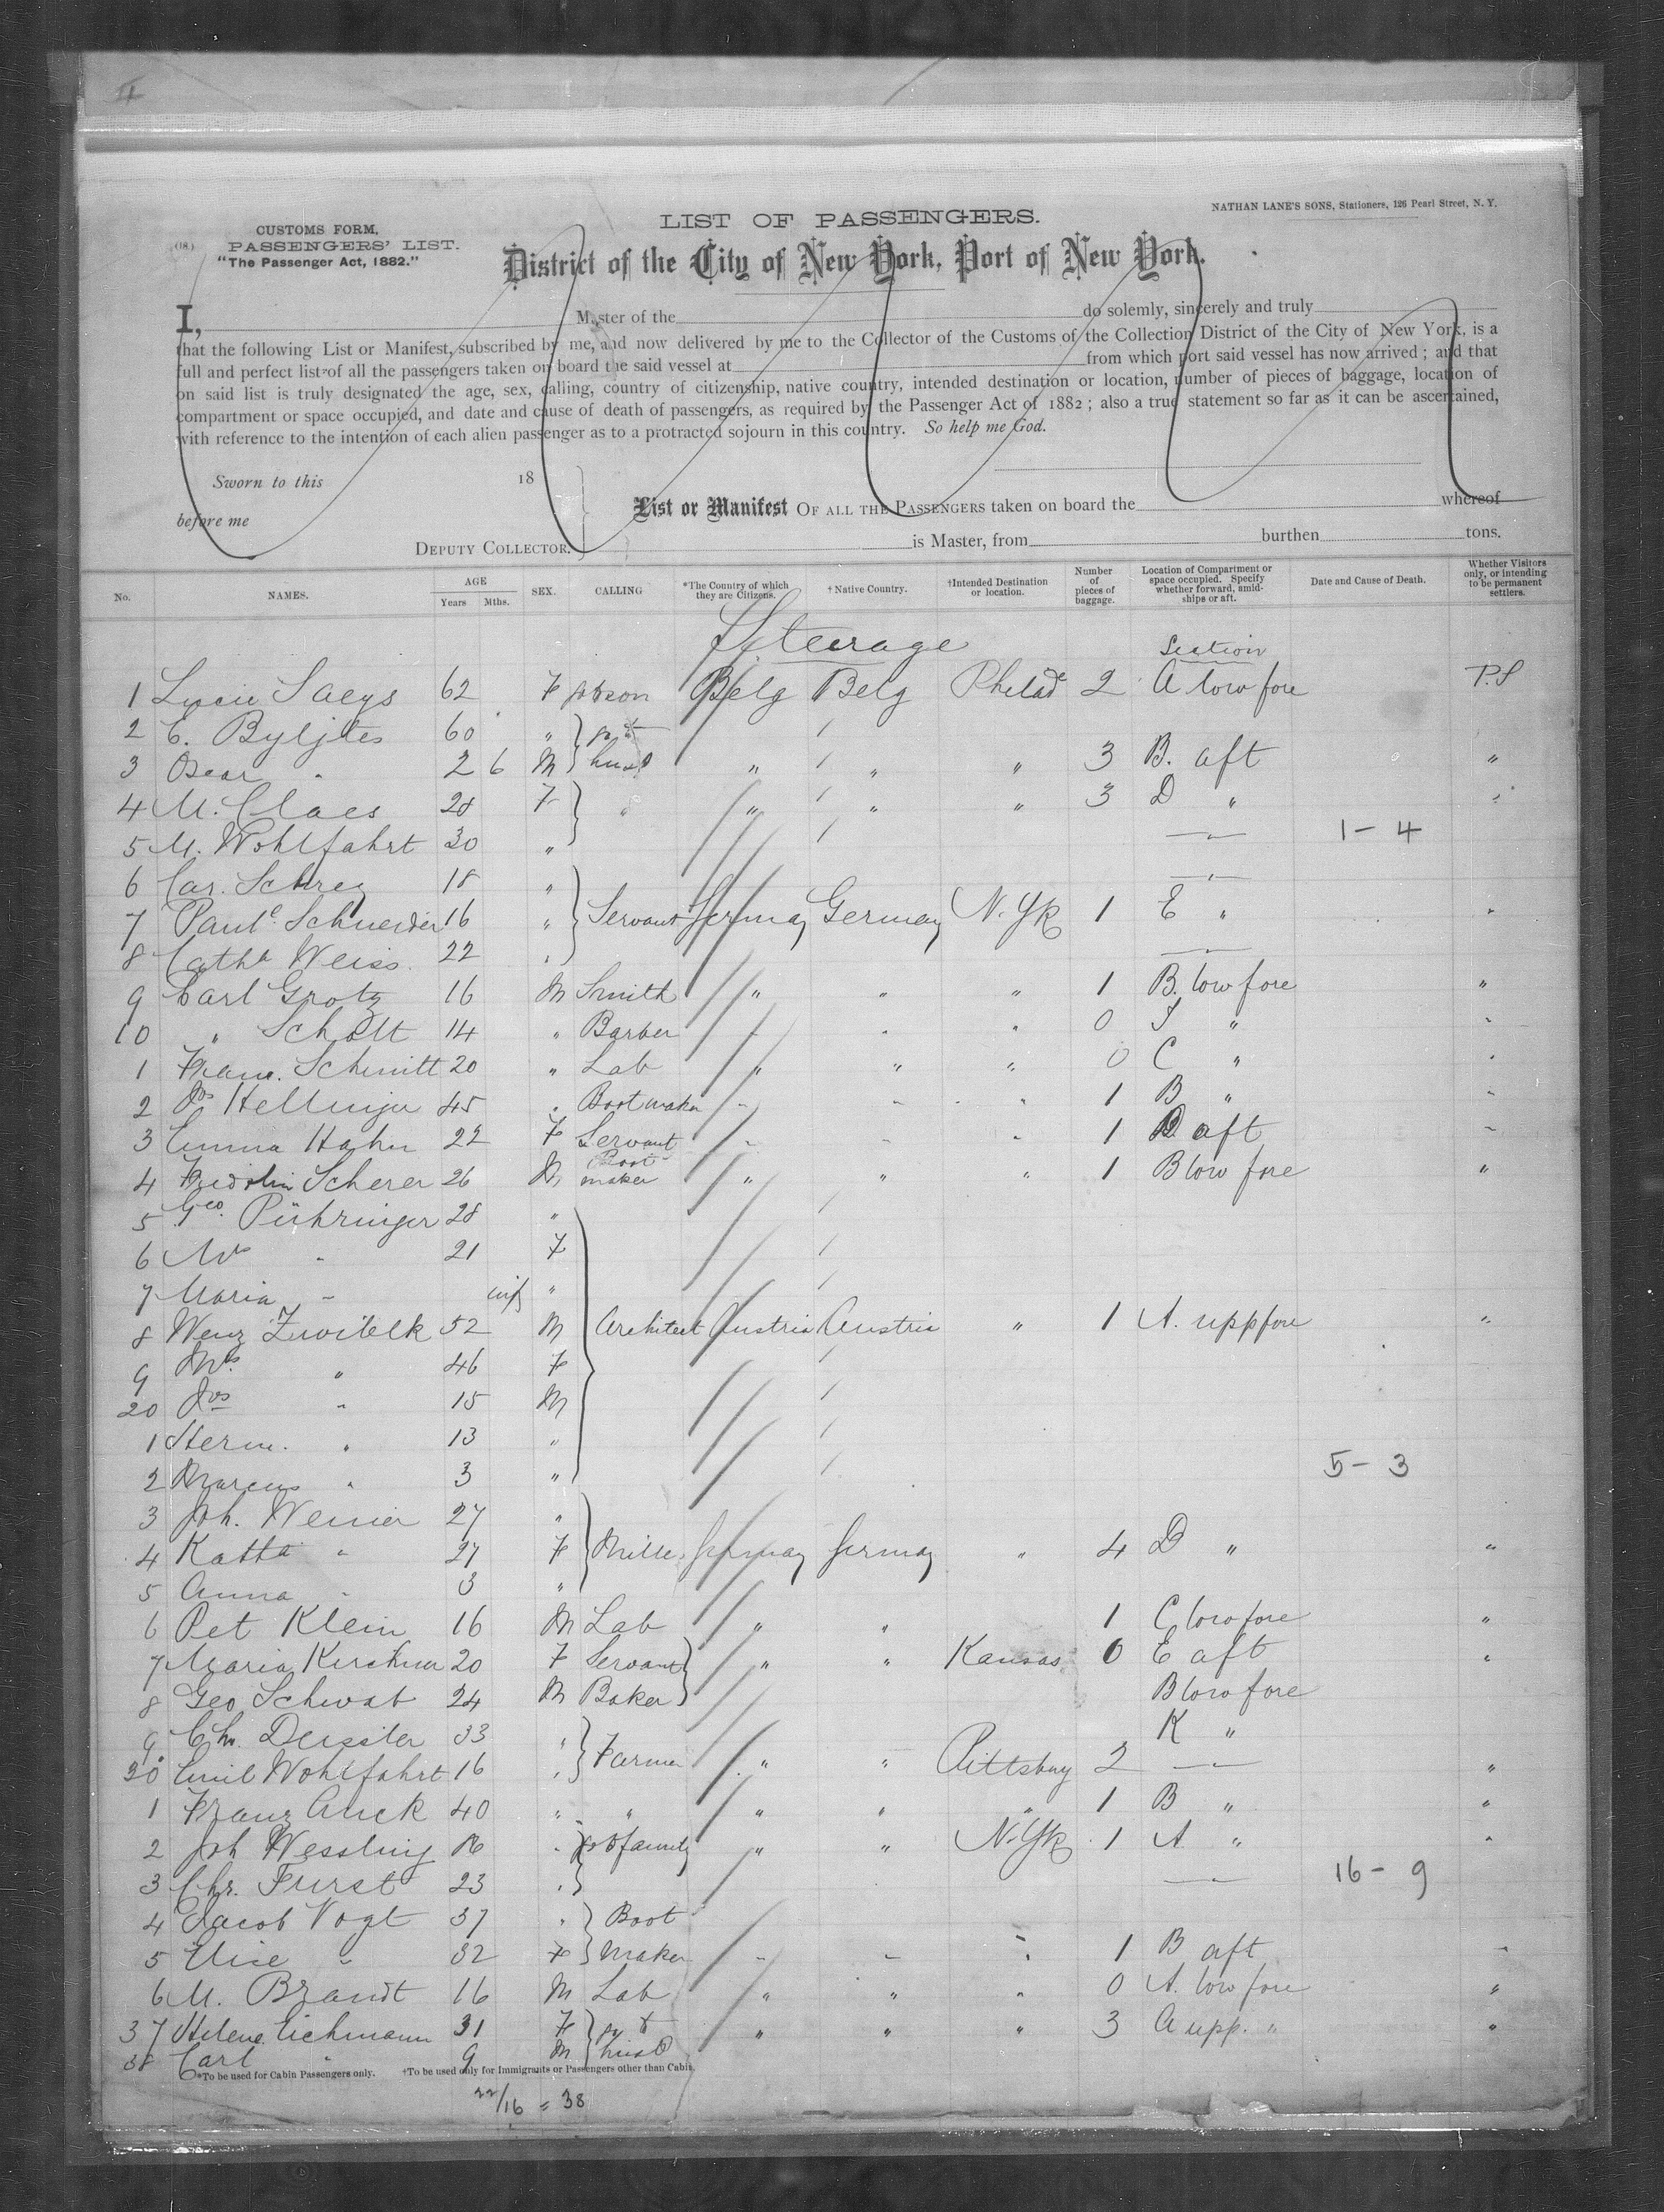 II
CUSTOMS FORM.
(08) PASSENGERS' LIST.
"The Passenger Act, 1882."
LIST OF PASSENGERS.
NATHAN LANE'S SONS, Stationers, 126 Pearl Street, N. Y.
District of the City of New York, Port of New York.
I, Master of the do solemly, sincerely and truly
that the following List or Manifest, subscribed by me, and now delivered by me to the Collector of the Customs of the Collection District of the City of New York, is a
full and perfect list of all the passengers taken on board the said vessel at from which port said vessel has now arrived; and that
on said list is truly designated the age, sex, calling, country of citizenship, native country, intended destination or location, number of pieces of baggage, location of
compartment or space occupied, and date and cause of death of passengers, as required by the Passenger Act of 1882; also a true statement so far as it can be ascertained,
with reference to the intention of each alien passenger as to a protracted sojourn in this country. So help me God.
Sworn to this 18
before me
DEPUTY COLLECTOR.
List or Manifest OF ALL THE PASSENGERS taken on board the whereof
is Master, from burthen tons.
No. NAMES. AGE Years Mths. SEX. CALLING *The Country of which they are Citizens. †Native Country. †Intended Destination or location. Number of pieces of baggage. Location of Compartment or space occupied. Specify whether forward, amidships or aft. Date and Cause of Death. Whether Visitors only, or intending to be permanent settlers.
Steerage Section
1 Lucie Saeys 62 F to son Belg Belg Philad 2 A low fore P.S
2 E. Byljtes 60 " go t
3 Oscar " 2 6 M husd " " " 3 B. aft "
4 M. Claes 28 F " " " " 3 D " "
5 M. Wohlfahrt 30 " — 1-4
6 Car. Schrey 18 " —
7 Paul<sup>e</sup> Schneider 16 " Servant Germay Germay N.Yk 1 E " "
8 Cath<sup>a</sup> Weiss 22 " —
9 Carl Grotz 16 M Smith " " " 1 B. low fore "
10 " Schott 14 " Barber " " " 0 F " "
1 Franc. Schmitt 20 " Lab " " " 0 C " "
2 Jos Hellinger 45 " Bootmaker " " " 1 B " "
3 Emma Hahn 22 F Servant " " " 1 D aft "
4 Fridolin Scherer 26 M Boot maker " " " 1 B low fore "
5 Geo. Pühringer 28 "
6 Mrs " 21 F
7 Maria " inf "
8 Wenz Zwilelk 52 M Architect Austria Austria " 1 A. upp fore "
9 Mrs. " 46 F
20 Jos " 15 M
1 Herm. " 13 "
2 Marcus " 3 " 5-3
3 Joh. Wenier 27 "
4 Katta " 27 F Mille. Germay Germay " 4 D " "
5 Anna " 3 "
6 Pet Klein 16 M Lab " " 1 C low fore "
7 Maria Kirchner 20 F Servant " " Kansas 0 E aft "
8 Geo Schwab 24 M Baker B low fore
9 Chr. Deissler 33 " K "
30 Emil Wohlfahrt 16 " Farmer " " Pittsburg 2 — "
1 Franz Anck 40 " " " " " 1 B " "
2 Joh Wessling 16 " to family " " N.Yk 1 A " "
3 Chr. Furst 23 " — 16-9
4 Jacob Vogt 37 " Boot
5 Elise " 32 F maker " " " 1 B aft "
6 M. Brandt 16 M Lab " " " 0 A. low fore "
37 Helene Eichmann 31 F go t " " " 3 A upp. " "
38 Carl " 9 M husd
*To be used for Cabin Passengers only. †To be used only for Immigrants or Passengers other than Cabin.
22/16 = 38